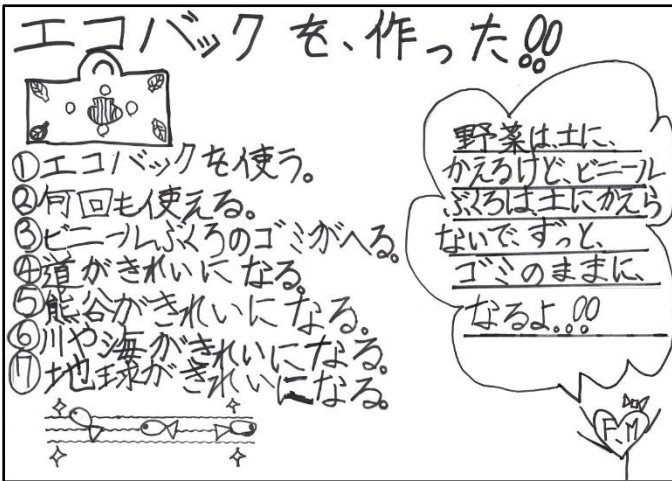 エコバックを、作った!!
①エコバックを使う。
②何回も使える。
③ビニールぶくろのゴミがへる。
④道がきれいになる。
⑤熊谷がきれいになる。
⑥川や海がきれいになる。
⑦地球がきれいになる。
野菜は、土に、
かえるけど、ビニール
ぶくろは、土にかえら
ないで、ずっと、
ゴミのままに、
なるよ。!!
F.M